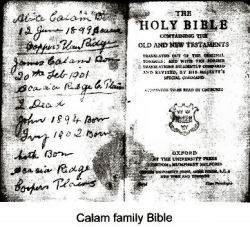 Alice Calam B
12 June 1898
Coopers Plain Ridge
James Calam Born
20th Feb 1901
Acacia Ridge C. Plain
2 Dead
John 1894 Born
Ivy 1902 Born
both Born
Acacia Ridge
Coopers Plains
THE
HOLY BIBLE
CONTAINING THE
OLD AND NEW TESTAMENTS
TRANSLATED OUT OF THE ORIGINAL
TONGUES: AND WITH THE FORMER
TRANSLATIONS DILIGENTLY COMPARED
AND REVISED, BY HIS MAJESTY'S
SPECIAL COMMAND
APPOINTED TO BE READ IN CHURCHES
OXFORD
AT THE UNIVERSITY PRESS
LONDON: HUMPHREY MILFORD
Calam family Bible